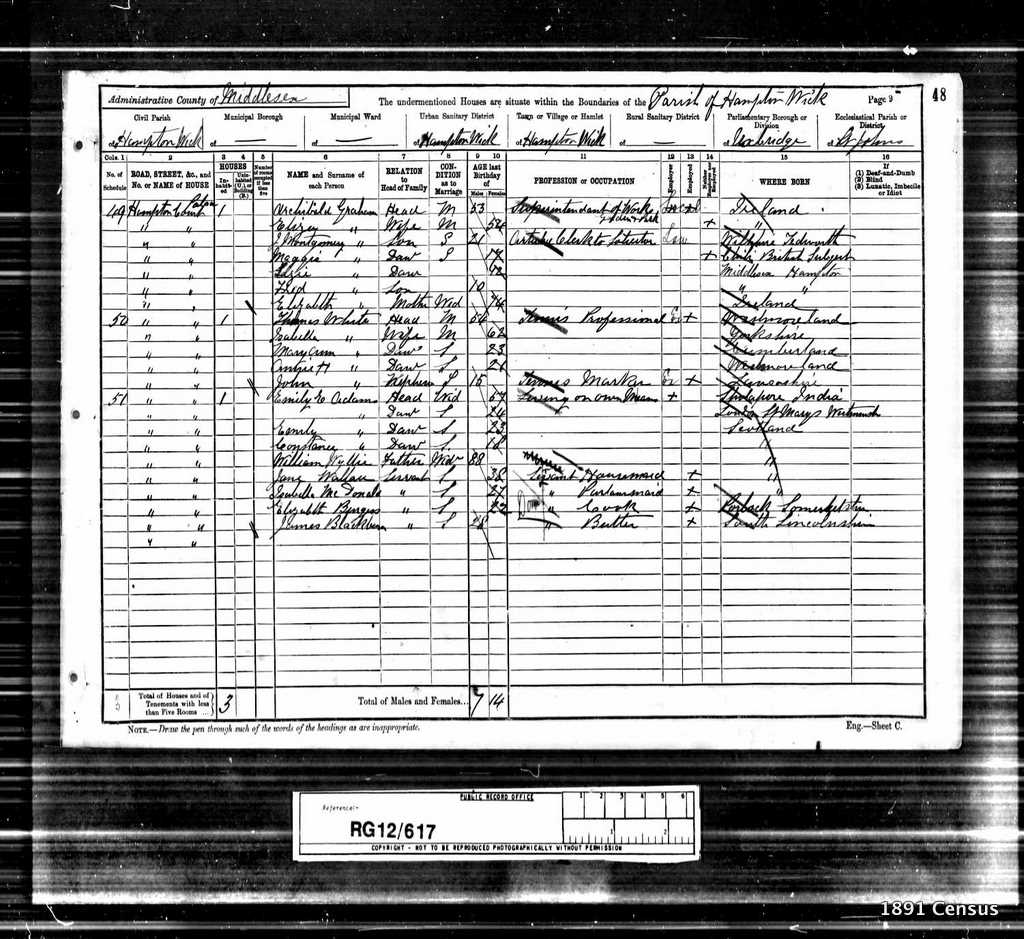 Administrative County of Middlesex
The undermentioned Houses are situate within the Boundaries of the Parish of Hampton Wick
Page 9
48
Civil Parish
of Hampton Wick
Municipal Borough
of —
Municipal Ward
of —
Urban Sanitary District
of Hampton Wick
Town or Village or Hamlet
of Hampton Wick
Rural Sanitary District
of —
Parliamentary Borough or Division
of Uxbridge
Ecclesiastical Parish or District
of St Johns
Cols. 1 2 3 4 5 6 7 8 9 10 11 12 13 14 15 16
No. of Schedule
ROAD, STREET, &c., and No. or NAME of HOUSE
HOUSES
Inhabited
NAME and Surname of each Person
RELATION to Head of Family
CONDITION as to Marriage
AGE last Birthday of
Males Females
PROFESSION or OCCUPATION
Employer
Employed
WHERE BORN
If
(1) Deaf-and-Dumb
(2) Blind
(3) Lunatic, Imbecile or Idiot
49 Hampton Court Palace 1 Archibald Graham Head M 53 Superintendant of Works Ireland
" " " Wife M 54 + "
" " J Montgomery " Son S 21 Clerk to Solicitor Wiltshire Tedworth
" " Maggie " Daur S 17 + British Subject
" " " Daur 12 Middlesex Hampton
" " Fred " Son 10 " "
" " Elizabeth " Mother Wid 74 Ireland
50 " " 1 Thomas Webster Head M Tennis Professional + Westmoreland
" " Isabella " Wife M 62 Yorkshire
" " Mary Ann " Daur S 23 Cumberland
" " " Daur S 21 Westmoreland
" " John " Nephew S 15 Tennis Marker + Lancashire
51 " " 1 Emily E Adams Head Wid 57 Living on own Means + Singapore India
" " " Daur S 24 London St Marys
" " Emily " Daur S 23 Scotland
" " Constance " Daur S 18 "
" " William Wyllie Father Widr 88 "
" " Jane Wallace Servant S 38 Servant Housemaid + "
" " Isabella McDonald " S 27 " Parlourmaid + "
" " Elizabeth Burgess " S 22 " Cook +
" " James Blackburn " S 28 " Butler + South Lincolnshire
" "
Total of Houses and of Tenements with less than Five Rooms ... 3
Total of Males and Females... 7 14
NOTE.—Draw the pen through such of the words of the headings as are inappropriate.
Eng.—Sheet C.
PUBLIC RECORD OFFICE
Reference:-
RG12/617
1 2 3 4 5 6
1 2
COPYRIGHT - NOT TO BE REPRODUCED PHOTOGRAPHICALLY WITHOUT PERMISSION
1891 Census